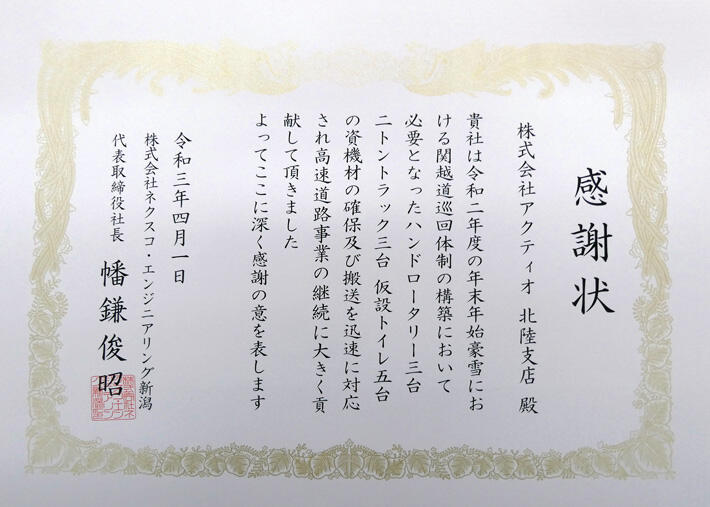 感謝状
株式会社アクティオ 北陸支店 殿
貴社は令和二年度の年末年始豪雪にお
ける関越道巡回体制の構築において
必要となったハンドロータリー三台
二トントラック三台 仮設トイレ五台
の資機材の確保及び搬送を迅速に対応
され高速道路事業の継続に大きく貢
献して頂きました
よってここに深く感謝の意を表します
令和三年四月一日
株式会社ネクスコ・エンジニアリング新潟
代表取締役社長 幡鎌俊昭